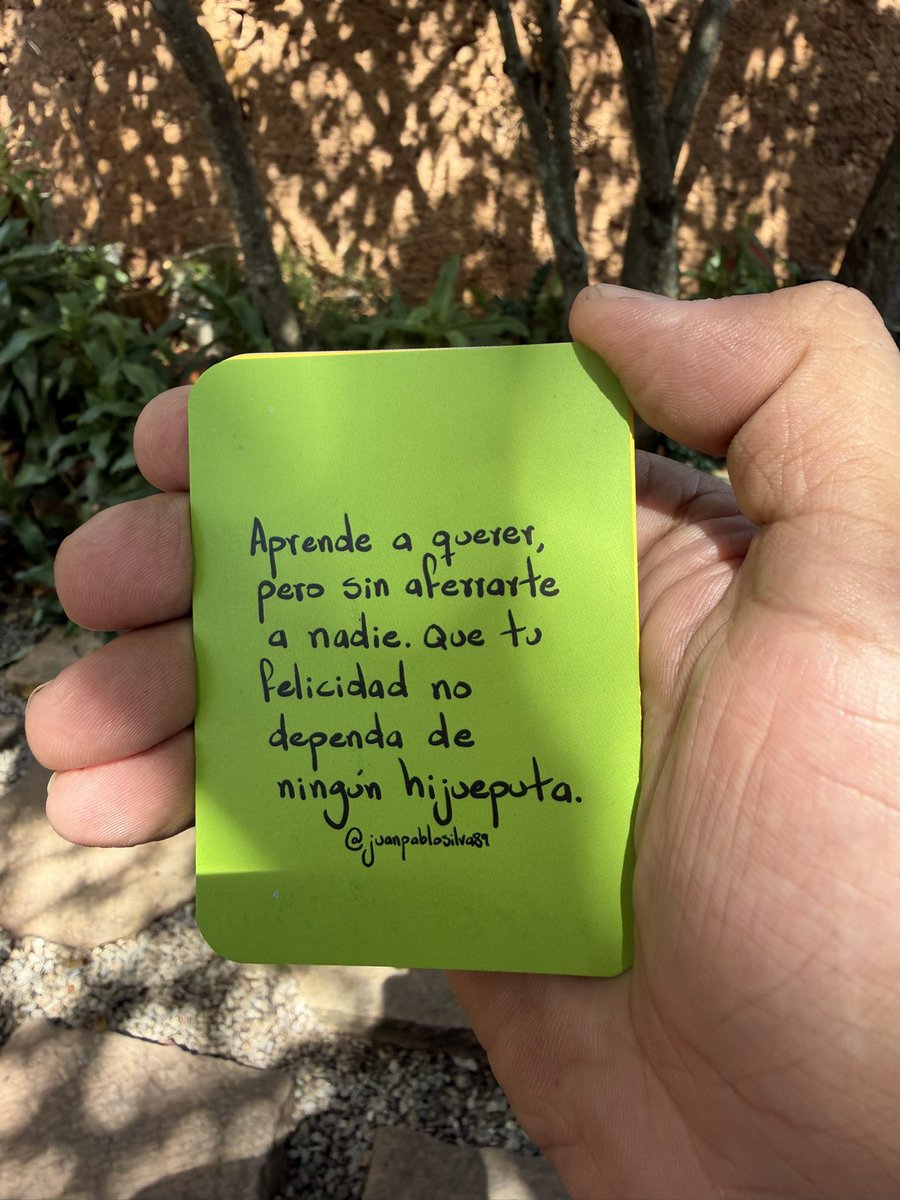 Aprende a querer,
pero sin aferrarte
a nadie. Que tu
felicidad no
dependa de
ningún hijueputa.
@juanpablosilva89